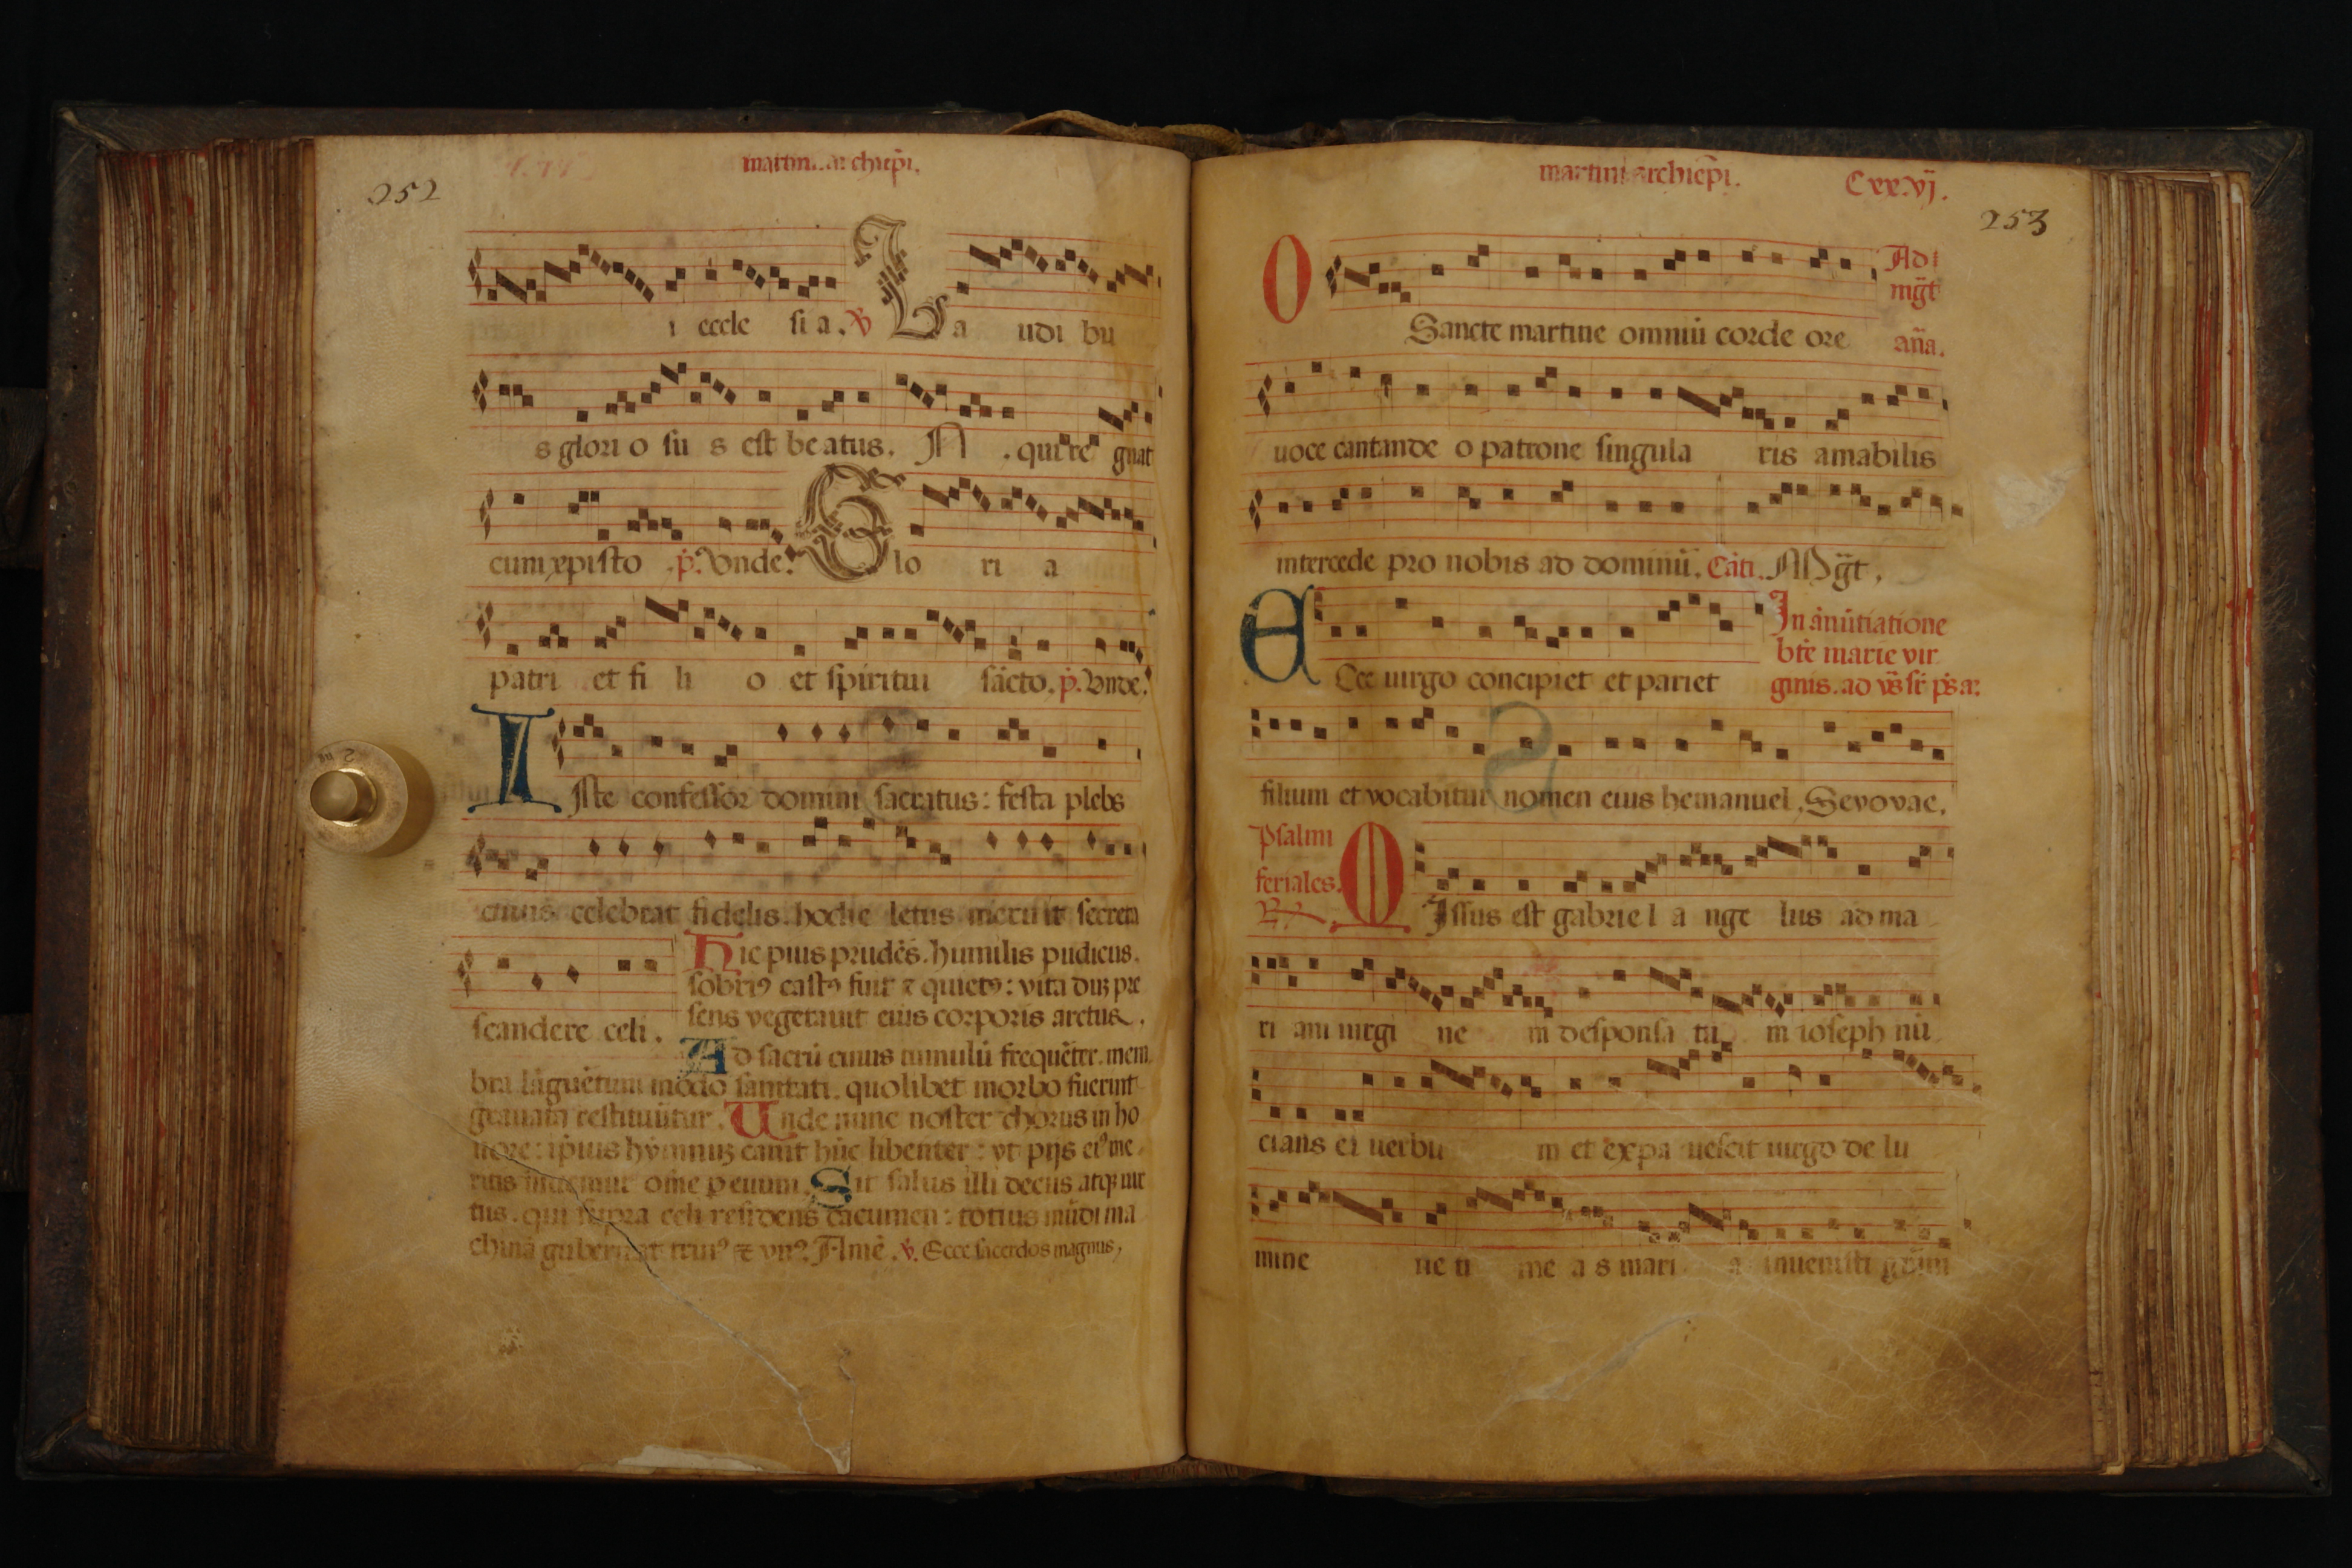 252
martini archiep̄i.
i eccle sia. ℣ La udi bu
s glori o su s est beatus. N . qui re gnat
cum xpisto .p̄. Vnde. Glo ri a
patri et fi li o et spiritui sācto. p̄. Vnde.
Iste confessor domini sacratus: festa plebs
cuius celebrat fidelis. hodie letus meruit secreta
scandere celi.
Hic pius prudēs. humilis pudicus.
sobriꝰ castꝰ fuit ⁊ quietꝰ: vita duꝫ pre
sens vegetauit eius corporis arctus.
Ad sacrū cuius tumulū frequēter. mem
bra lāguētium modo sanitati. quolibet morbo fuerint
grauata restituūtur. Vnde nunc noster chorus in ho
nore: ip̄ius hymnuꝫ canit hūc libenter: vt pijs eiꝰ me
ritis iuuemur om̄e p euum. Sit salus illi decus atqꝫ uir
tus. qui supra celi residens cacumen: totius mūdi ma
chinā gubernat trinꝰ ⁊ vnꝰ. Amē. ℣. Ecce sacerdos magnus,
martini archiep̄i.
Cxx.vj.
253
O Sancte martine omniū corde ore
Ad mḡt aña.
uoce cantande o patrone singula ris amabilis
intercede pro nobis ad dominū. Cāti. Mḡt,
Ecce uirgo concipiet et pariet
In ānūtiatione
bt̄e marie vir
ginis. ad vs̄
filium et vocabitur nomen eius hemanuel. Sevovae.
Psalmi
feriales.
℟
Missus est gabrie l a nge lus ad ma
ri am uirgi ne m desponsa ta m ioseph nū
cians ei uerbu m et expa uescit uirgo de lu
mine ne ti me a s mari a inuenisti